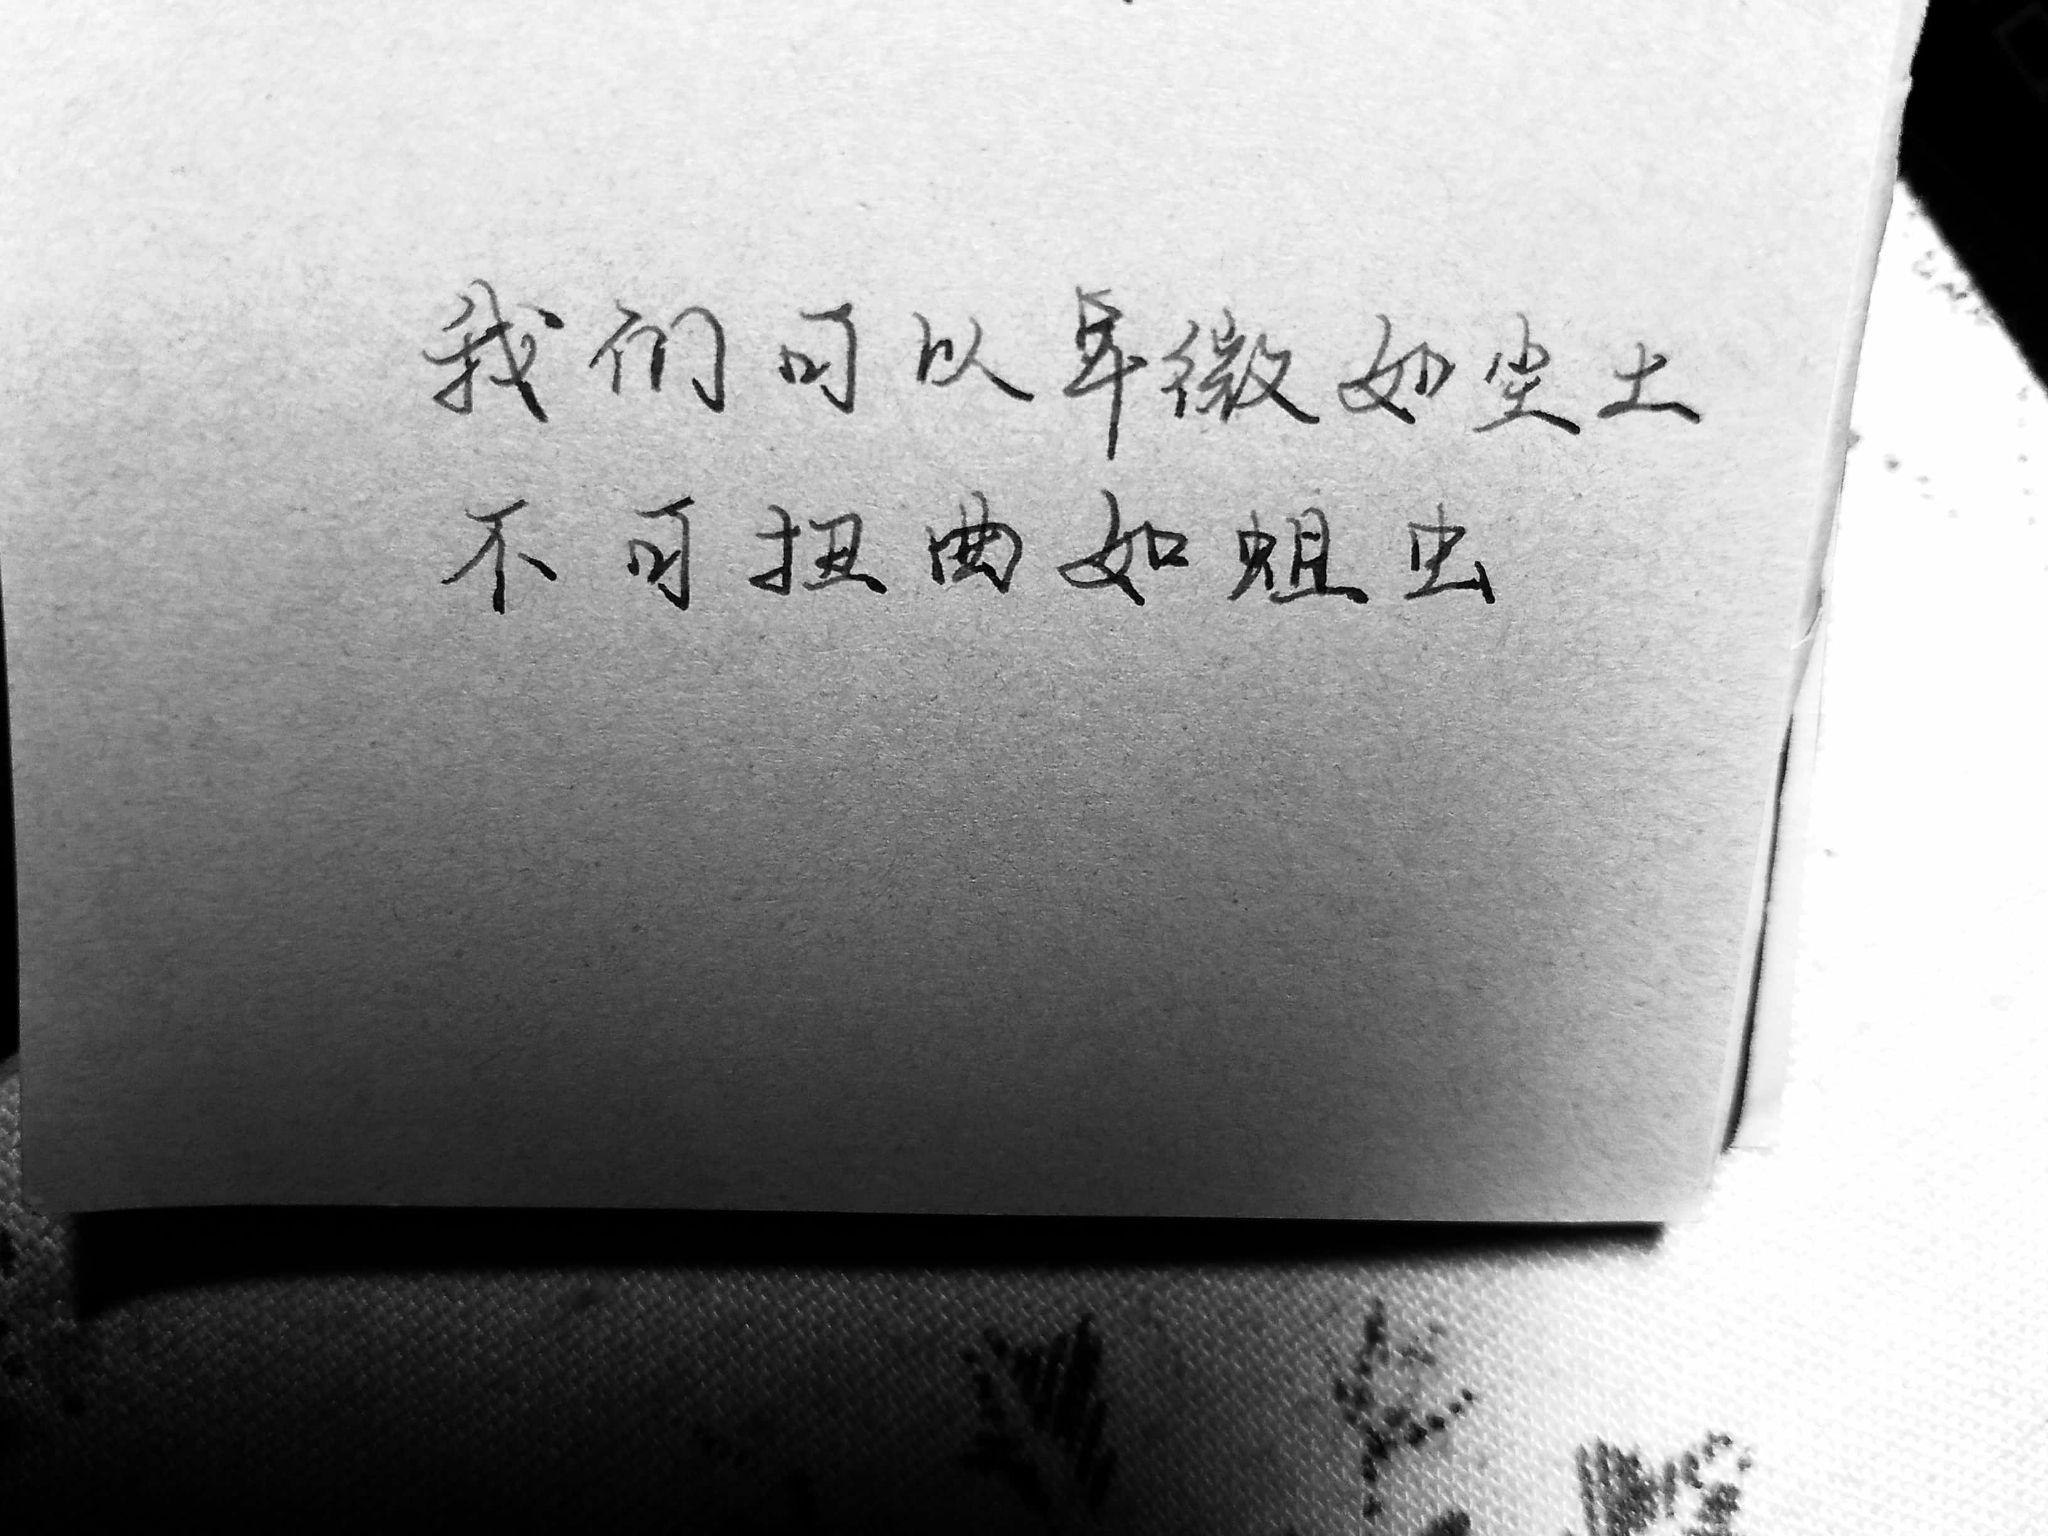 我们可以卑微如尘土
不可扭曲如蛆虫